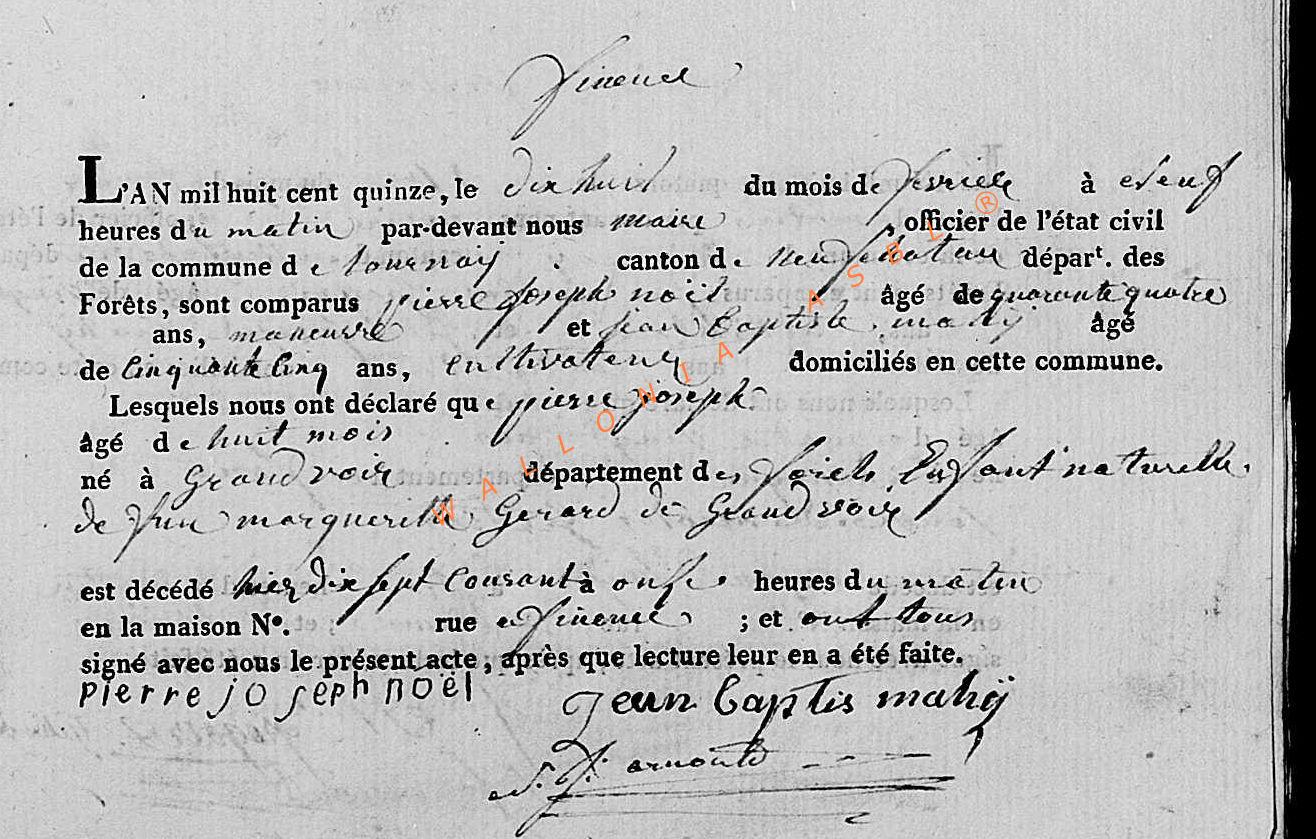 fineuse
L'AN mil huit cent quinze, le dix huit du mois de fevrier à neuf
heures du matin par-devant nous maire, officier de l'état civil
de la commune de tournay. canton de neufchateau départ. des
Forêts, sont comparus pierre joseph noël âgé de quarante quatre
ans, maneuvre et jean baptiste mahÿ âgé
de Cinquante Cinq ans, cultivateur domiciliés en cette commune.
Lesquels nous ont déclaré que pierre joseph.
âgé de huit mois
né à Grandvoir département des forets Enfant naturelle.
de feue marguerite Gerard de Grandvoir
est décédé hier dix sept Courant à onse heures du matin
en la maison N°. rue ; et ont tous
signé avec nous le présent acte, après que lecture leur en a été faite.
pierre joseph noël
Jean baptis mahÿ
arnould
WALLONIA ASBL ®